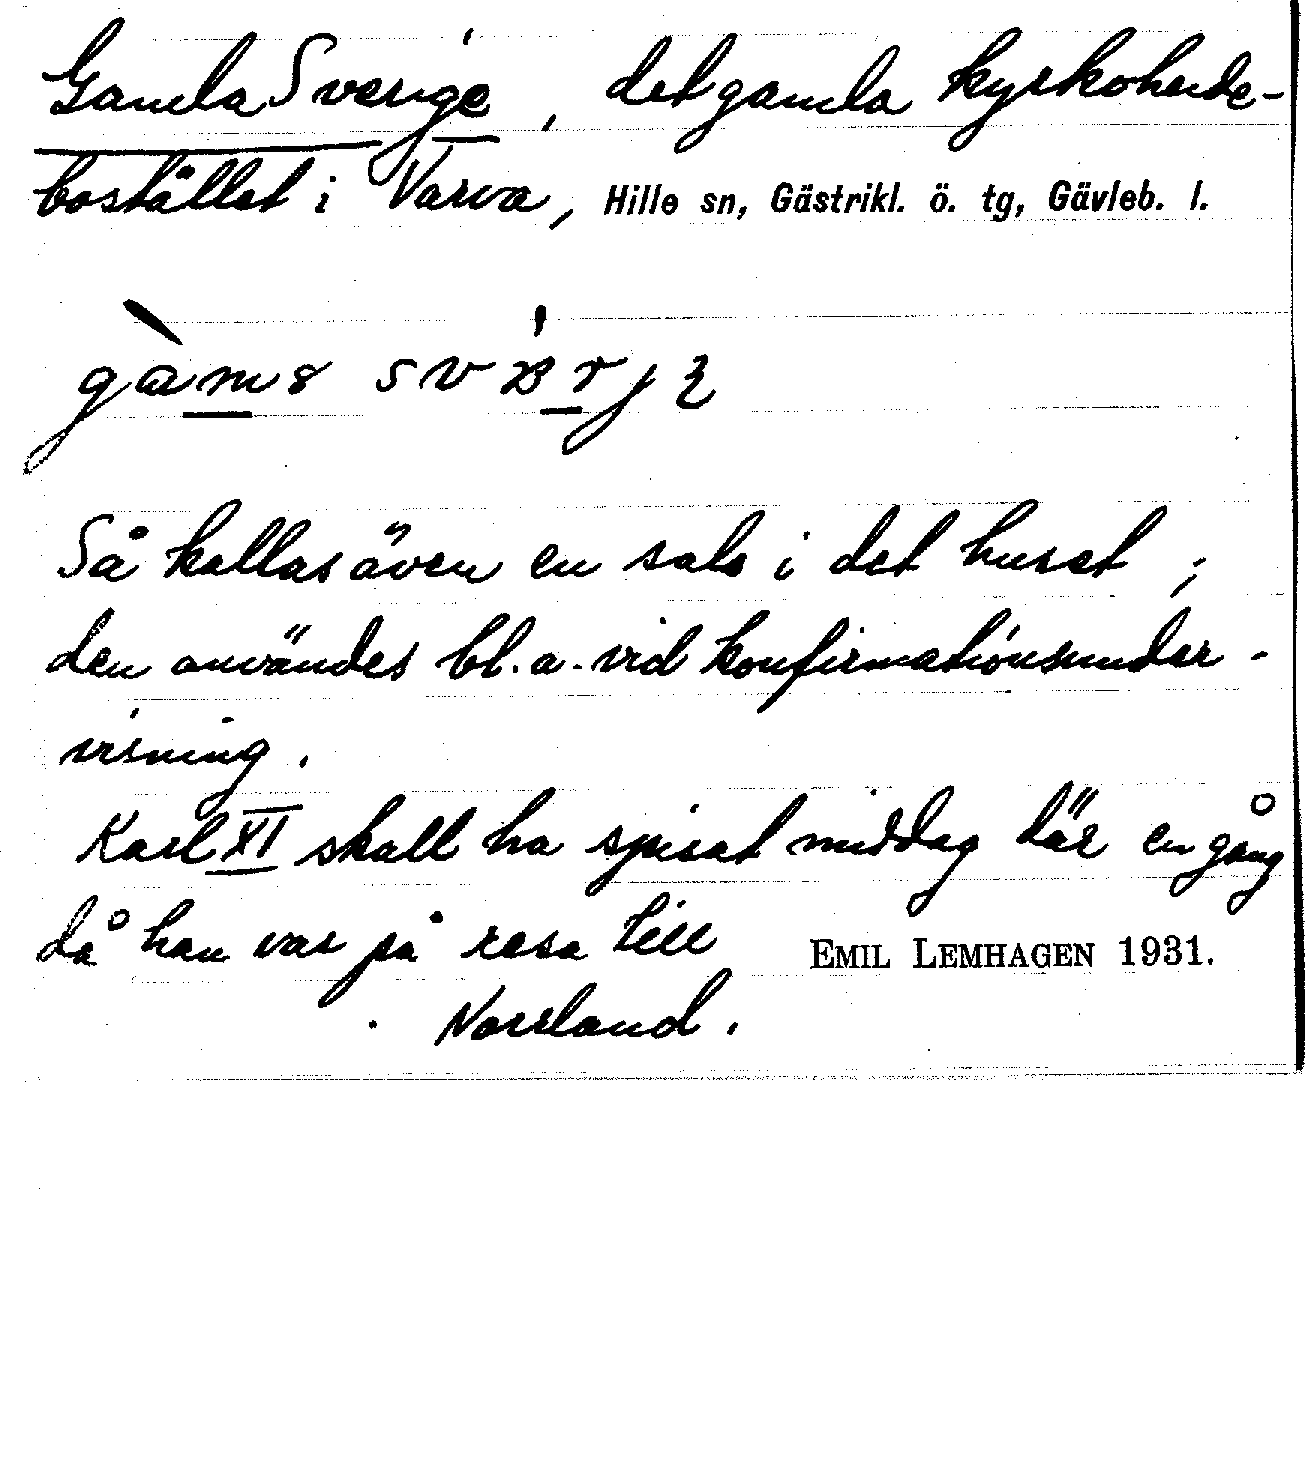 Gamla Sverige, det gamla kyrkoherde-
bostället i Varva, Hille sn, Gästrikl. ö. tg, Gävleb. l.
Så kallas även en sal i det huset;
den användes bl.a. vid konfirmationsunder-
visning.
Karl XI skall ha spisat middag där en gång
då han var på resa till EMIL LEMHAGEN 1931.
Norrland.